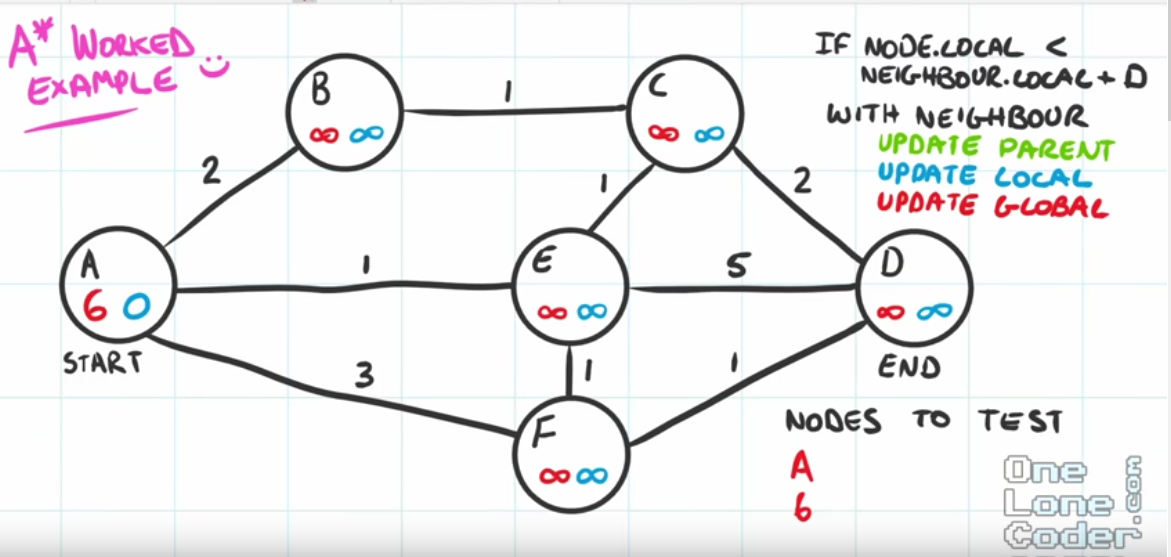 A* WORKED
EXAMPLE
IF NODE.LOCAL <
NEIGHBOUR.LOCAL + D
WITH NEIGHBOUR
UPDATE PARENT
UPDATE LOCAL
UPDATE GLOBAL
B
∞ ∞
1
C
∞ ∞
2
1
2
A
6 0
START
1
E
∞ ∞
5
D
∞ ∞
END
3
1
1
F
∞ ∞
NODES TO TEST
A
6
One
Lone
Coder
.com